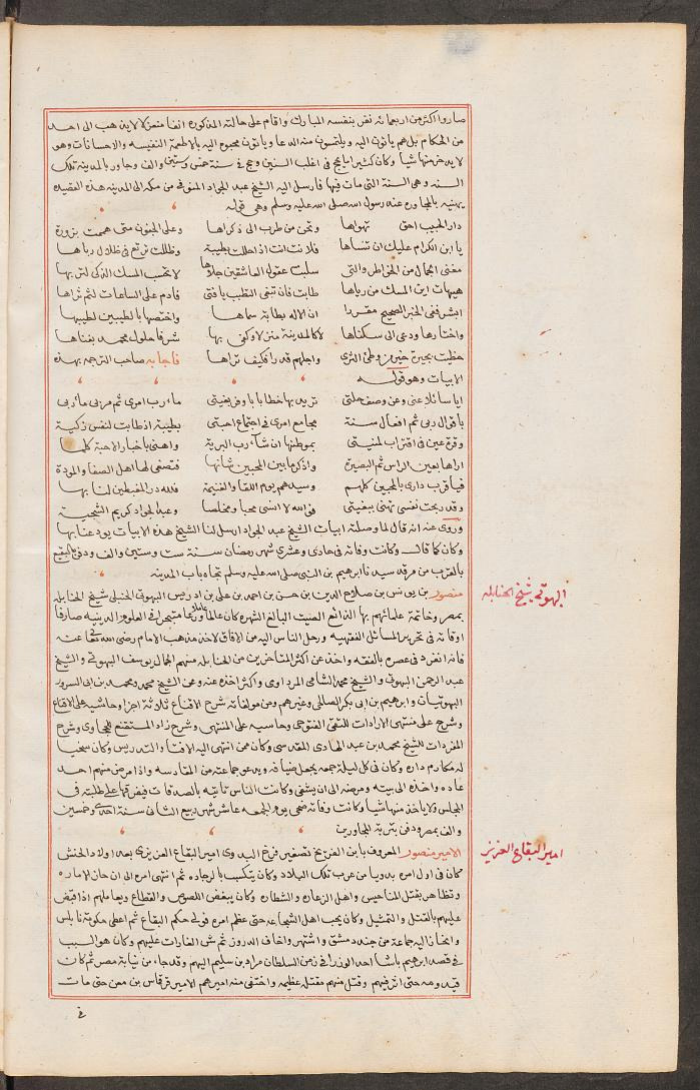 صاروا اكثر من اربعمائة نفر بنفسه المبارك واقام على حالته المذكورة انفا منعزلا لا يذهب الى احد
من الحكام بل هم ياتون اليه ويلتمسون منه الدعا وياتون محبوه اليه بالاطعمة النفيسه والاحسانات وهو
لا يدخر منها شيا وكان كثيرا ما يحج في اغلب السنين وحج في سنة خمس وستين والف وجاور بالمدينه تلك
السنه وهي السنة التي مات فيها فارسل اليه الشيخ عبد الجواد المنوفي من مكه الى المدينه هذه القصيده
يهنيه بالمجاوره عند رسول الله صلى الله عليه وسلم وهي قوله
دار الحبيب احق تهواها وتحن من طرب الى ذكراها وعلى الجفون متى هممت بزورة
يا ابن الكرام عليك ان تنساها فلانت انت اذا حللت بطيبة وظللت ترتع في ظلال رباها
مغنى الجمال من الخواطر والتي سلبت عقول العاشقين حلاها لا تحسب المسك الذكي لتربها
هيهات اين المسك من رياها طابت فان تبغى التطيب يافتى فادم على الساعات لثم ثراها
ابشر ففي الخبر الصحيح مقررا ان الاله بطابة سماها واختصها بالطيبين لطيبها
واختارها ودعى الى سكناها لا كالمدينة منزل وكفى بها شرفا حلول محمد بفناها
حظيت بهجرة خير من وطئ الثرى واجلهم قدرا فكيف تراها فاجابه صاحب الترجمه بهذه
الابيات وهو قوله
ايا سائلا عني وعن وصف حالتي تريد بها خطابا وفق بغيتي مارب امري ثم مرمى ماربي
مجامع امري في اجتماع احبتي بطيبة اذ طابت لنفس زكية
وقرة عين في اقتراب لمنيتي بموطنها ان شا رب البرية واهنى باخبار الاحبة كلما
اراها بعين الراس ثم البصيرة واذكر ما بين المحبين شانها فتصغى لها اهل الصفا والمودة
فيا قرب داري بالمحبين كلهم وسيدهم يوم اللقا والغنيمة فلله در الغبطين لنا بها
وقد ربحت نفسي تهني ببغيتي فوالله لا انسى محبا ومخلصا وعبد الجواد كريم الشجية
وروى عنه انه قال لما وصلته ابيات الشيخ عبد الجواد ارسل لنا الشيخ هذه الابيات يودعنا بها
وكان كما قال وكانت وفاته في حادي وعشري شهر رمضان سنة ست وستين والف ودفن بالبقيع
بالقرب من مرقد سيدنا ابراهيم بن النبي صلى الله عليه وسلم تجاه باب المدينه
منصور بن يونس بن صلاح الدين بن حسن بن احمد بن علي بن ادريس البهوتي الحنبلي شيخ الحنابله
البهوتي شيخ الحنابله
بمصر وخاتمة علمائهم بها الذائع الصيت البالغ الشهره كان عالما عاملا ورعا متبحرا في العلوم الدينيه صارفا
اوقاته في تحرير المسائل الفقهيه ورحل الناس اليه من الافاق لاخذ مذهب الامام رضي الله تعالى عنه
فانه انفرد في عصره بالفقه واخذ عن اكثر المتاخرين من الحنابله منهم الجمال يوسف البهوتي والشيخ
عبد الرحمن البهوتي والشيخ محمد الشامي المرداوي واكثر اخذه عنه وعن الشيخ محمد ومحمد بن ابي السرور
البهوتيان وابراهيم بن ابي بكر الصالحي وغيرهم ومن مولفاته شرح الاقناع ثلاثة اجزا وحاشيه على الاقناع
وشرح على منتهى الارادات للتقي الفتوحي وحاشيه على المنتهى وشرح زاد المستقنع للحجاوي وشرح
المفردات للشيخ محمد بن عبد الهادي المقدسي وكان ممن انتهى اليه الافتا والتدريس وكان سخيا
له مكارم داره وكان في كل ليلة جمعه يجعل ضيافه ويدعو جماعته من المقادسه واذا مرض منهم احد
عاده واخذه الى بيته ومرضه الى ان يشفى وكانت الناس تاتيه بالصدقات فيفرقها على طلبته في
المجلس ولا ياخذ منها شيا وكانت وفاته ضحى يوم الجمعه عاشر شهر ربيع الثاني سنة احدى وخمسين
والف بمصر ودفن بتربة المجاورين
الامير منصور المعروف بابن الفريخ تصغير فرخ البدوي امير البقاع العزيزي بعد اولاد الحنش
امير البقاع العزيز
كان في اول امره بدويا من عرب تلك البلاد وكان يتكسب بالرجاده ثم انتهى امره الى ان حاز الاماره
وتظاهر بقتل المناحيس واهل الزعاره والشطاره وكان يبغض اللصوص والقطاع ويعاملهم اذا قبض
عليهم بالقتل والتمثيل وكان يحب اهل الشجاعه حتى عظم امره فولي حكم البقاع ثم اعطي حكومة نابلس
وانحاز اليه جماعة من جند دمشق واشتهر واخاف الدروز ثم شن الغارات عليهم وكان هو السبب
في قصد ابرهيم باشا احد الوزرا في زمن السلطان مراد بن سليم اليهم وقد جاء من نيابة مصر ثم كان
قيدومه حتى اثر فيهم وقتل منهم مقتله عظيمه واختفى منه اميرهم الامير قرقماس بن معن حتى مات
في